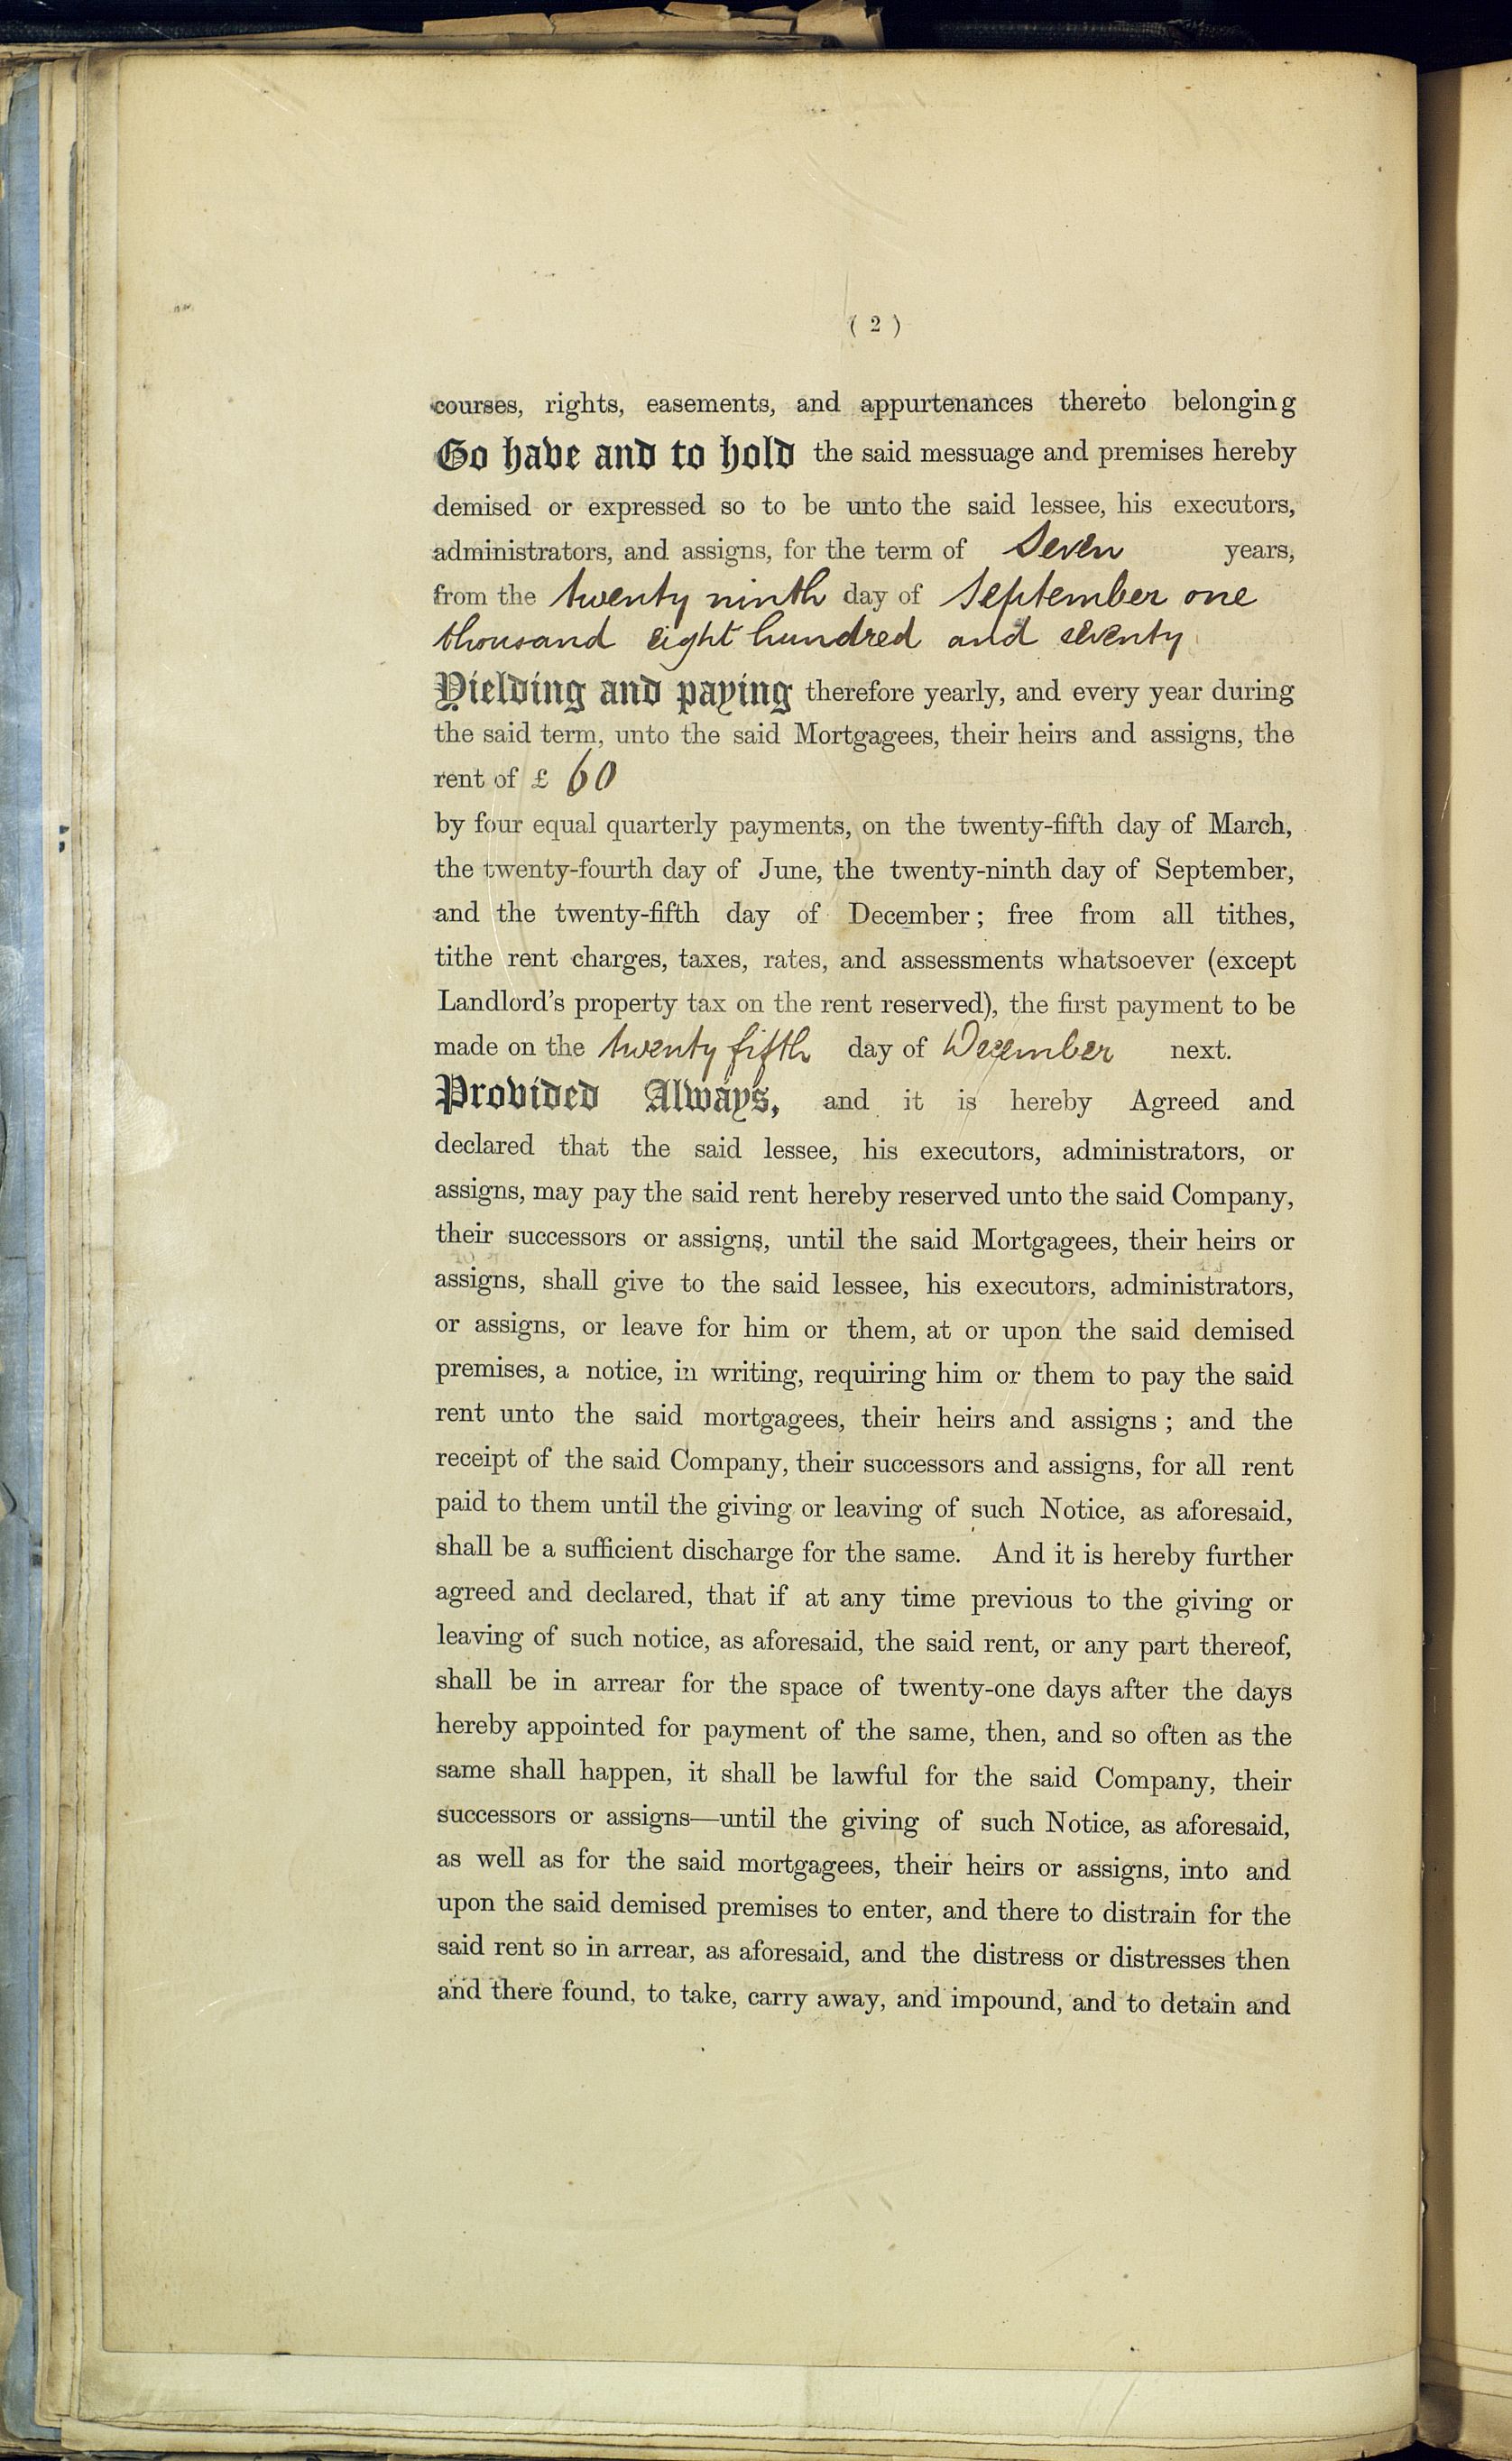 ( 2 )
courses, rights, easements, and appurtenances thereto belonging
To have and to hold the said messuage and premises hereby
demised or expressed so to be unto the said lessee, his executors,
administrators, and assigns, for the term of Seven years,
from the twenty ninth day of September one
thousand eight hundred and seventy
Yielding and paying therefore yearly, and every year during
the said term, unto the said Mortgagees, their heirs and assigns, the
rent of £ 60
by four equal quarterly payments, on the twenty-fifth day of March,
the twenty-fourth day of June, the twenty-ninth day of September,
and the twenty-fifth day of December; free from all tithes,
tithe rent charges, taxes, rates, and assessments whatsoever (except
Landlord's property tax on the rent reserved), the first payment to be
made on the twenty fifth day of December next.
Provided Always, and it is hereby Agreed and
declared that the said lessee, his executors, administrators, or
assigns, may pay the said rent hereby reserved unto the said Company,
their successors or assigns, until the said Mortgagees, their heirs or
assigns, shall give to the said lessee, his executors, administrators,
or assigns, or leave for him or them, at or upon the said demised
premises, a notice, in writing, requiring him or them to pay the said
rent unto the said mortgagees, their heirs and assigns; and the
receipt of the said Company, their successors and assigns, for all rent
paid to them until the giving or leaving of such Notice, as aforesaid,
shall be a sufficient discharge for the same. And it is hereby further
agreed and declared, that if at any time previous to the giving or
leaving of such notice, as aforesaid, the said rent, or any part thereof,
shall be in arrear for the space of twenty-one days after the days
hereby appointed for payment of the same, then, and so often as the
same shall happen, it shall be lawful for the said Company, their
successors or assigns—until the giving of such Notice, as aforesaid,
as well as for the said mortgagees, their heirs or assigns, into and
upon the said demised premises to enter, and there to distrain for the
said rent so in arrear, as aforesaid, and the distress or distresses then
and there found, to take, carry away, and impound, and to detain and